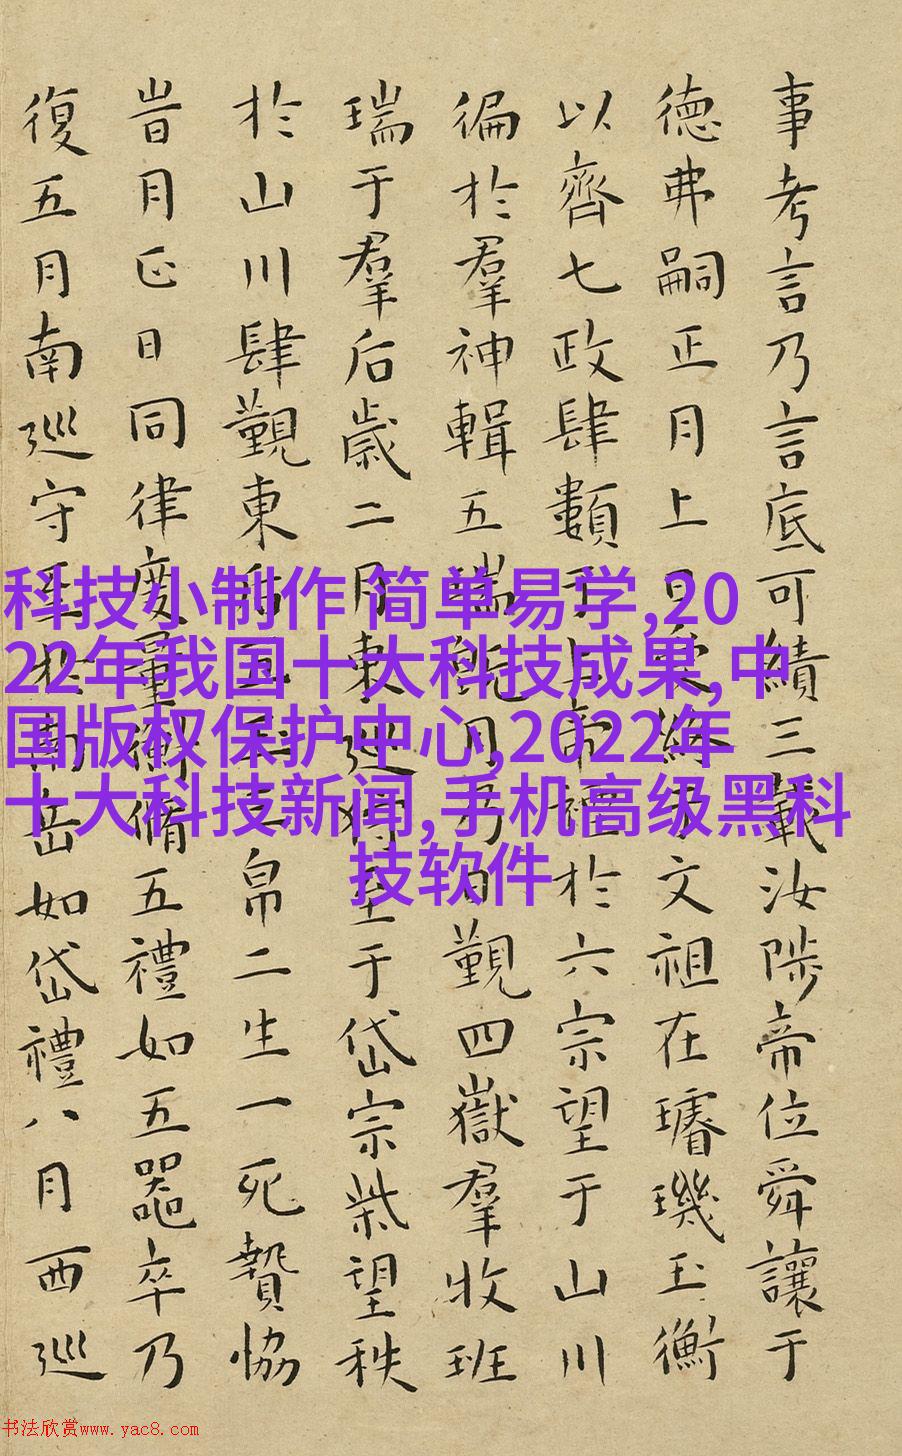 事考言乃言底可績三載汝陟帝位舜讓于
德弗嗣正月上日受終于文祖在璿璣玉衡
以齊七政肆類于上帝禋於六宗望于山川
徧於羣神輯五瑞旣月乃日覲四嶽羣牧班
瑞于羣后歲二月東巡狩至于岱宗柴望秩
於山川肆覲東后五三帛二生一死贄協
旹月正日同律度量衡脩五禮如五器卒乃
復五月南巡守至於南岳如岱禮八月西巡
科技小制作 简单易学,20
22年我国十大科技成果,中
国版权保护中心,2022年
十大科技新闻,手机高级黑科
技软件
书法欣赏www.yac8.com